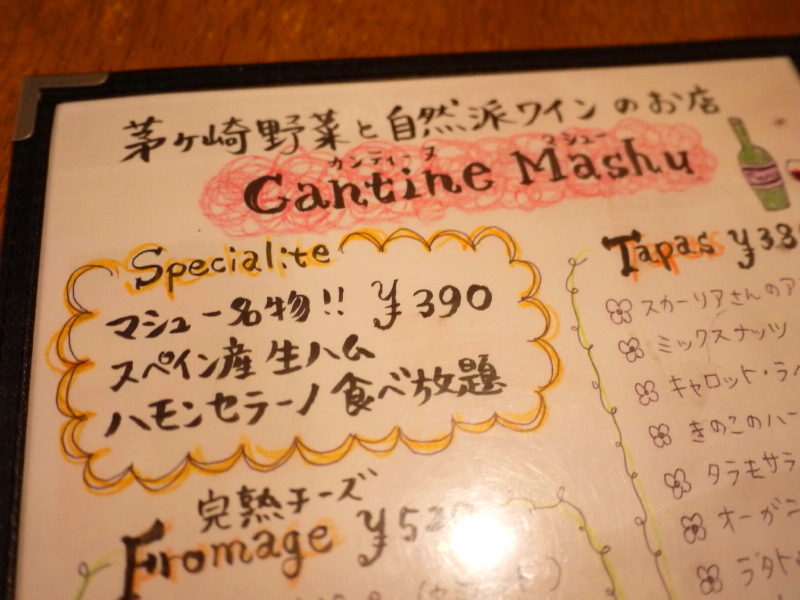 茅ヶ崎野菜と自然派ワインのお店
カンティーヌ マシュー
Cantine Mashu
Specialite
マシュー名物!! ¥390
スペイン産 生ハム
ハモンセラーノ 食べ放題
完熟チーズ
Fromage
Tapas
スカーリアさんのア
ミックスナッツ
キャロット・ラペ
きのこのハー
タラモサラ
オーガニ
ラタト